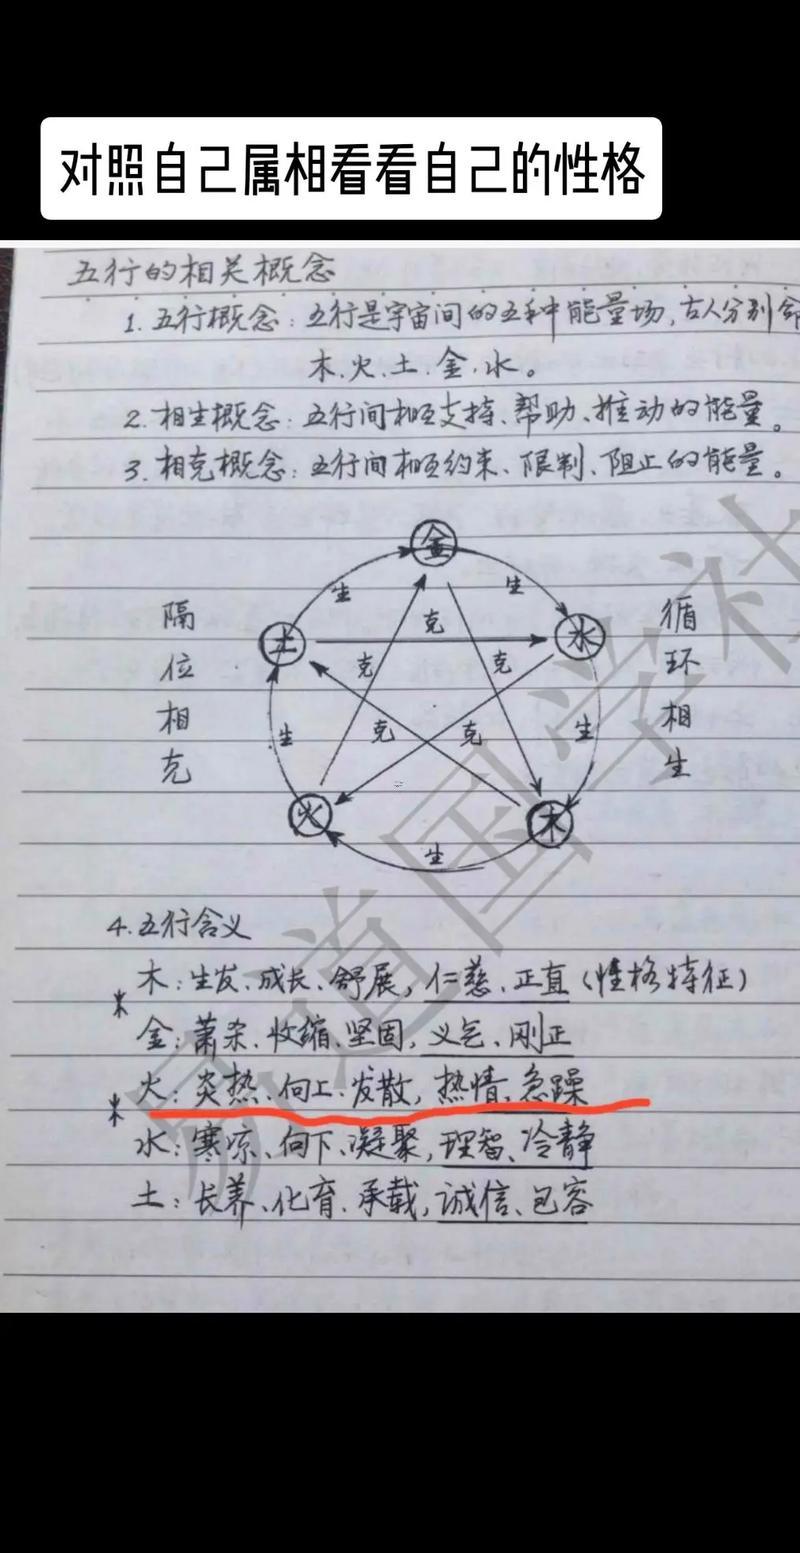 对照自己属相看看自己的性格
五行的相关概念
1. 五行概念：五行是宇宙间的五种能量场，古人分别命
木、火、土、金、水。
2. 相生概念：五行间相互支持、帮助、推动的能量。
3. 相克概念：五行间相互约束、限制、阻止的能量。
金
生 生
隔位相克
土 克 水
循环相生
克 克
生 克 克 生
火 木
生
4. 五行含义
木：生发、成长、舒展，仁慈、正直（性格特征）
金：萧杀、收缩、坚固，义气、刚正
火：炎热、向上、发散，热情、急躁
水：寒凉、向下、凝聚，理智、冷静
土：长养、化育、承载，诚信、包容
易道国学社